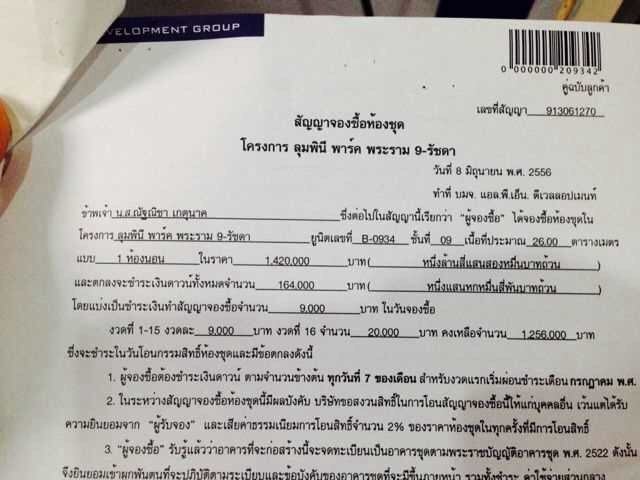 VELOPMENT GROUP
0 000000 209342
คู่ฉบับลูกค้า
เลขที่สัญญา 913061270
สัญญาจองซื้อห้องชุด
โครงการ ลุมพินี พาร์ค พระราม 9-รัชดา
วันที่ 8 มิถุนายน พ.ศ. 2556
ทำที่ บมจ. แอล.พี.เอ็น. ดีเวลลอปเมนท์
ข้าพเจ้า น.ส.ณัฐณิชา เกตุนาค ซึ่งต่อไปในสัญญานี้เรียกว่า "ผู้จองซื้อ" ได้จองซื้อห้องชุดใน
โครงการ ลุมพินี พาร์ค พระราม 9-รัชดา ยูนิตเลขที่ B-0934 ชั้นที่ 09 เนื้อที่ประมาณ 26.00 ตารางเมตร
แบบ 1 ห้องนอน ในราคา 1,420,000 บาท ( หนึ่งล้านสี่แสนสองหมื่นบาทถ้วน )
และตกลงจะชำระเงินดาวน์ทั้งหมดจำนวน 164,000 บาท ( หนึ่งแสนหกหมื่นสี่พันบาทถ้วน )
โดยแบ่งเป็นชำระเงินทำสัญญาจองซื้อจำนวน 9,000 บาท ในวันจองซื้อ
งวดที่ 1-15 งวดละ 9,000 บาท งวดที่ 16 จำนวน 20,000 บาท คงเหลือจำนวน 1,256,000 บาท
ซึ่งจะชำระในวันโอนกรรมสิทธิ์ห้องชุดและมีข้อตกลงดังนี้
1. ผู้จองซื้อต้องชำระเงินดาวน์ ตามจำนวนข้างต้น ทุกวันที่ 7 ของเดือน สำหรับงวดแรกเริ่มผ่อนชำระเดือน กรกฎาคม พ.ศ.
2. ในระหว่างสัญญาจองซื้อห้องชุดนี้มีผลบังคับ บริษัทขอสงวนสิทธิในการโอนสัญญาจองซื้อนี้ให้แก่บุคคลอื่น เว้นแต่ได้รับ
ความยินยอมจาก "ผู้รับจอง" และเสียค่าธรรมเนียมการโอนสิทธิ์จำนวน 2% ของราคาห้องชุดในทุกครั้งที่มีการโอนสิทธิ์
3. "ผู้จองซื้อ" รับรู้แล้วว่าอาคารที่จะก่อสร้างนี้จะจดทะเบียนเป็นอาคารชุดตามพระราชบัญญัติอาคารชุด พ.ศ. 2522 ดังนั้น
จึงยินยอมเข้าผูกพันตนที่จะปฏิบัติตามระเบียบและข้อบังคับของอาคารชุดที่จะมีขึ้นภายหน้า รวมทั้งชำระ ค่าใช้จ่ายส่วนกลาง